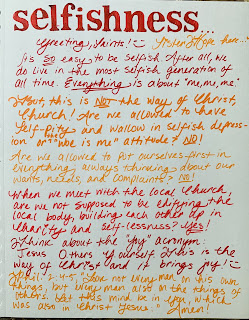 selfishness...
Greeting, Saints! Sister Hope here...
It's SO easy to be selfish. After all, we
do live in the most selfish generation of
all time. Everything is about "me, me, me."
But this is NOT the way of Christ,
Church! Are we allowed to have
self-pity and wallow in selfish depres-
sion or "woe is me" attitude? NO!
Are we allowed to put ourselves first in
everything, always thinking about our
wants, needs, and complaints? NO!
When we meet with the local church,
are we not supposed to be edifying the
local body, building each other up in
Charity and self-lessness? Yes!
Think about the "joy" acronym:
Jesus Others Yourself This is the
way of Christ and it brings joy!
Phil 2:4-5 "Look not every man on his own
things, but every man also on the things of
others. Let this mind be in you, which
was also in Christ Jesus." Amen!